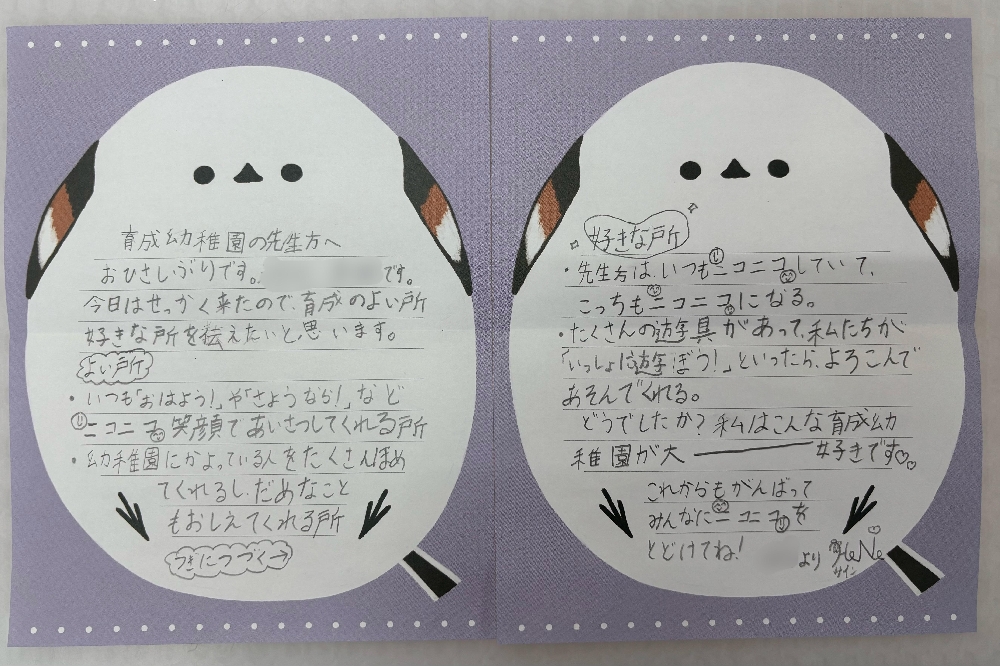 育成幼稚園の先生方へ
おひさしぶりです。 です。
今日はせっかく来たので、育成のよい所
好きな所を伝えたいと思います。
よい所
・いつも「おはよう!」や「さようなら!」など
ニコニコ笑顔であいさつしてくれる所
・幼稚園にかよっている人をたくさんほめ
てくれるし、だめなこと
もおしえてくれる所
つぎにつづく→
好きな所
・先生方は、いつもニコニコしていて、
こっちもニコニコになる。
・たくさんの遊具があって、私たちが
「いっしょに遊ぼう!」といったら、よろこんで
あそんでくれる。
どうでしたか?私はこんな育成幼
稚園が大――好きです♡♡
これからもがんばって
みんなにニコニコを
とどけてね!
より
サイン